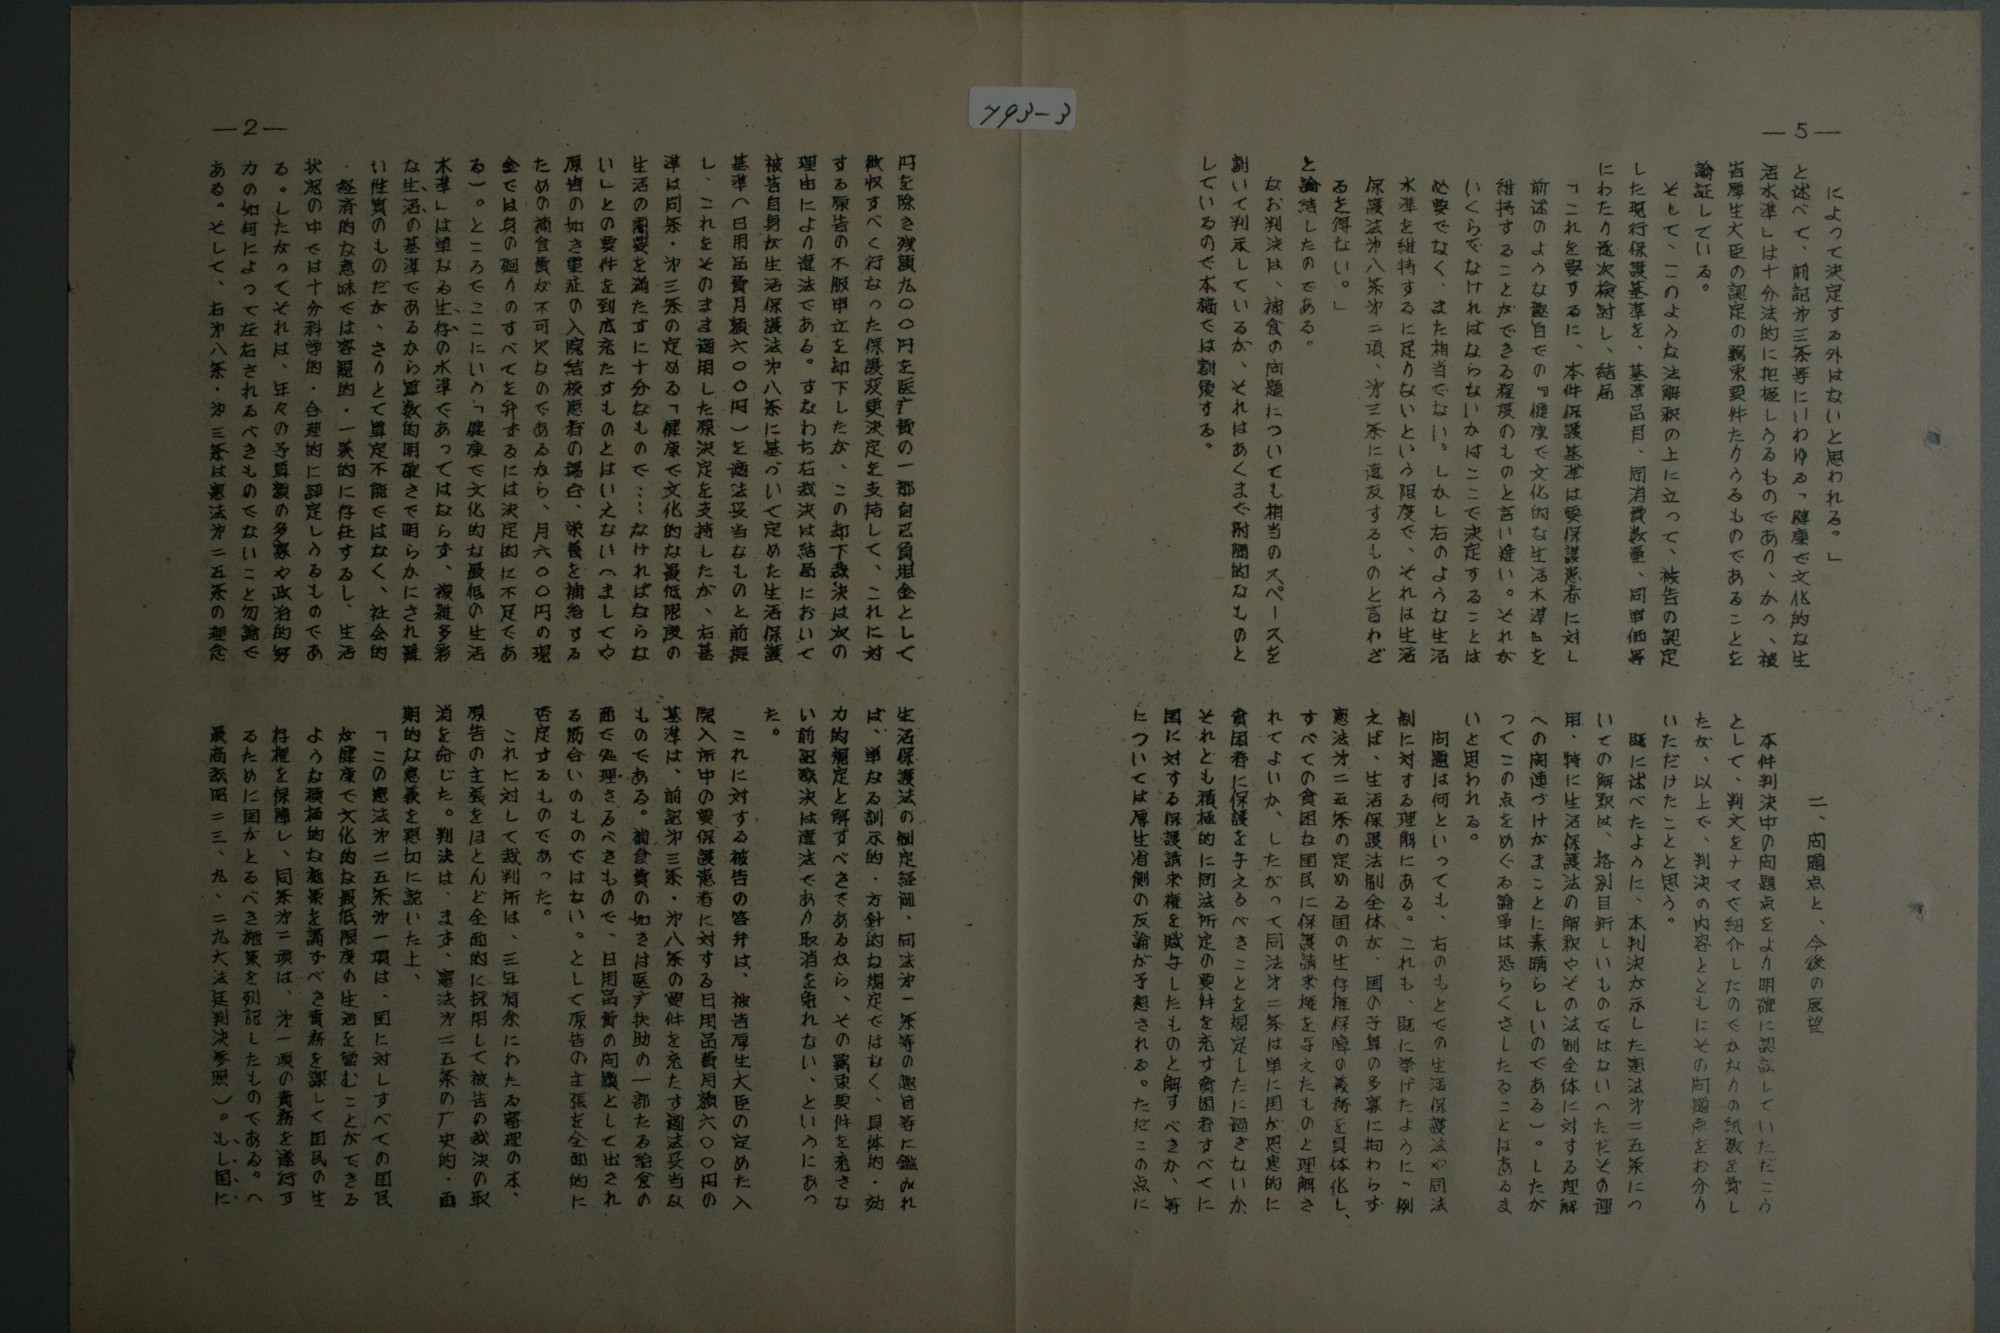 793-3
—5—
によって決定する外はないと思われる。」
と述べて、前記オ三条等にいわゆる「健康で文化的な生
活水準」は十分法的に把握しうるものであり、かつ、被
告厚生大臣の認定の羈束要件たりうるものであることを
論証している。
そして、このような法解釈の上に立って、被告の認定
した現行保護基準を、基準品目、同消費数量、同単価等
にわたり逐次検討し、結局
「これを要するに、本件保護基準は要保護患者に対し
前述のような趣旨での『健康で文化的な生活水準』を
維持することができる程度のものと言い難い。それが
いくらでなければならないかはここで決定することは
必要でなく、また相当でない。しかし右のような生活
水準を維持するに足りないという限度で、それは生活
保護法オ八条オ二項、オ三条に違反するものと言わざ
るを得ない。」
と論結したのである。
なお判決は、補食の問題についても相当のスペースを
割いて判示しているが、それはあくまで附随的なものと
しているので本稿では割愛する。
二、問題点と、今後の展望
本件判決中の問題点をより明確に認識していただこう
として、判文をナマで紹介したのでかなりの紙数を費し
たが、以上で、判決の内容とともにその問題点をお分り
いただけたことと思う。
既に述べたように、本判決が示した憲法オ二五条につ
いての解釈は、格別目新しいものではない（ただその運
用、特に生活保護法の解釈やその法制全体に対する理解
への関連づけがまことに素晴らしいのである）。したが
ってこの点をめぐる論争は恐らくさしたることはあるま
いと思われる。
問題は何といっても、右のもとでの生活保護法や同法
制に対する理解にある。これも、既に挙げたように、例
えば、生活保護法制全体が、国の予算の多寡に拘わらず
憲法オ二五条の定める国の生存権保障の義務を具体化し、
すべての貧困な国民に保護請求権を与えたものと理解さ
れてよいか、したがって同法オ二条は単に国が恩恵的に
貧困者に保護を与えるべきことを規定したに過ぎないか
それとも積極的に同法所定の要件を充す貧困者すべてに
国に対する保護請求権を賦与したものと解すべきか、等
については厚生省側の反論が予想される。ただこの点に
—2—
円を除き残額九〇〇円を医疗費の一部自己負担金として
徴収すべく行なった保護変更決定を支持して、これに対
する原告の不服申立を却下したが、この却下裁決は次の
理由により違法である。すなわち右裁決は結局において
被告自身が生活保護法オ八条に基づいて定めた生活保護
基準（日用品費月額六〇〇円）を適法妥当なものと前提
し、これをそのまま適用した原決定を支持したが、右基
準は同条・オ三条の定める「健康で文化的な最低限度の
生活の需要を満たすに十分なもので…なければならな
い」との要件を到底充たすものとはいえない（ましてや
原告の如き重症の入院結核患者の場合、栄養を補給する
ための補食費が不可欠なのであるから、月六〇〇円の現
金では身の廻りのすべてを弁ずるには決定的に不足であ
る）。ところでここにいう「健康で文化的な最低の生活
水準」は単なる生存の水準であってはならず、複雑多彩
な生活の基準であるから算数的明確さで明らかにされ難
い性質のものだが、さりとて算定不能ではなく、社会的
・経済的な意味では客観的・一義的に存在するし、生活
状況の中では十分科学的・合理的に認定しうるものであ
る。したがってそれは、年々の予算額の多寡や政治的努
力の如何によって左右されるべきものでないこと勿論で
ある。そして、右オ八条・オ三条は憲法オ二五条の理念
生活保護法の制定経過、同法オ一条等の趣旨等に鑑みれ
ば、単なる訓示的・方針的な規定ではなく、具体的・効
力的規定と解すべきであるから、その羈束要件を充さな
い前記裁決は違法であり取消を免れない、というにあっ
た。
これに対する被告の答弁は、被告厚生大臣の定めた入
院入所中の要保護患者に対する日用品費月額六〇〇円の
基準は、前記オ三条・オ八条の要件を充たす適法妥当な
ものである。補食費の如きは医疗扶助の一部たる給食の
面で処理さるべきもので、日用品費の問題として出され
る筋合いのものではない。として原告の主張を全面的に
否定するものであった。
これに対して裁判所は、三年有余にわたる審理の末、
原告の主張をほとんど全面的に採用して被告の裁決の取
消を命じた。判決は、まず、憲法オ二五条の厂史的・画
期的な意義を懇切に説いた上、
「この憲法オ二五条オ一項は、国に対しすべての国民
が健康で文化的な最低限度の生活を営むことができる
ような積極的な施策を講すべき責務を課して国民の生
存権を保障し、同条オ二項は、オ一項の責務を遂行す
るために国がとるべき施策を列記したものである。（
最高裁昭二三、九、二九大法廷判決参照）。もし国に